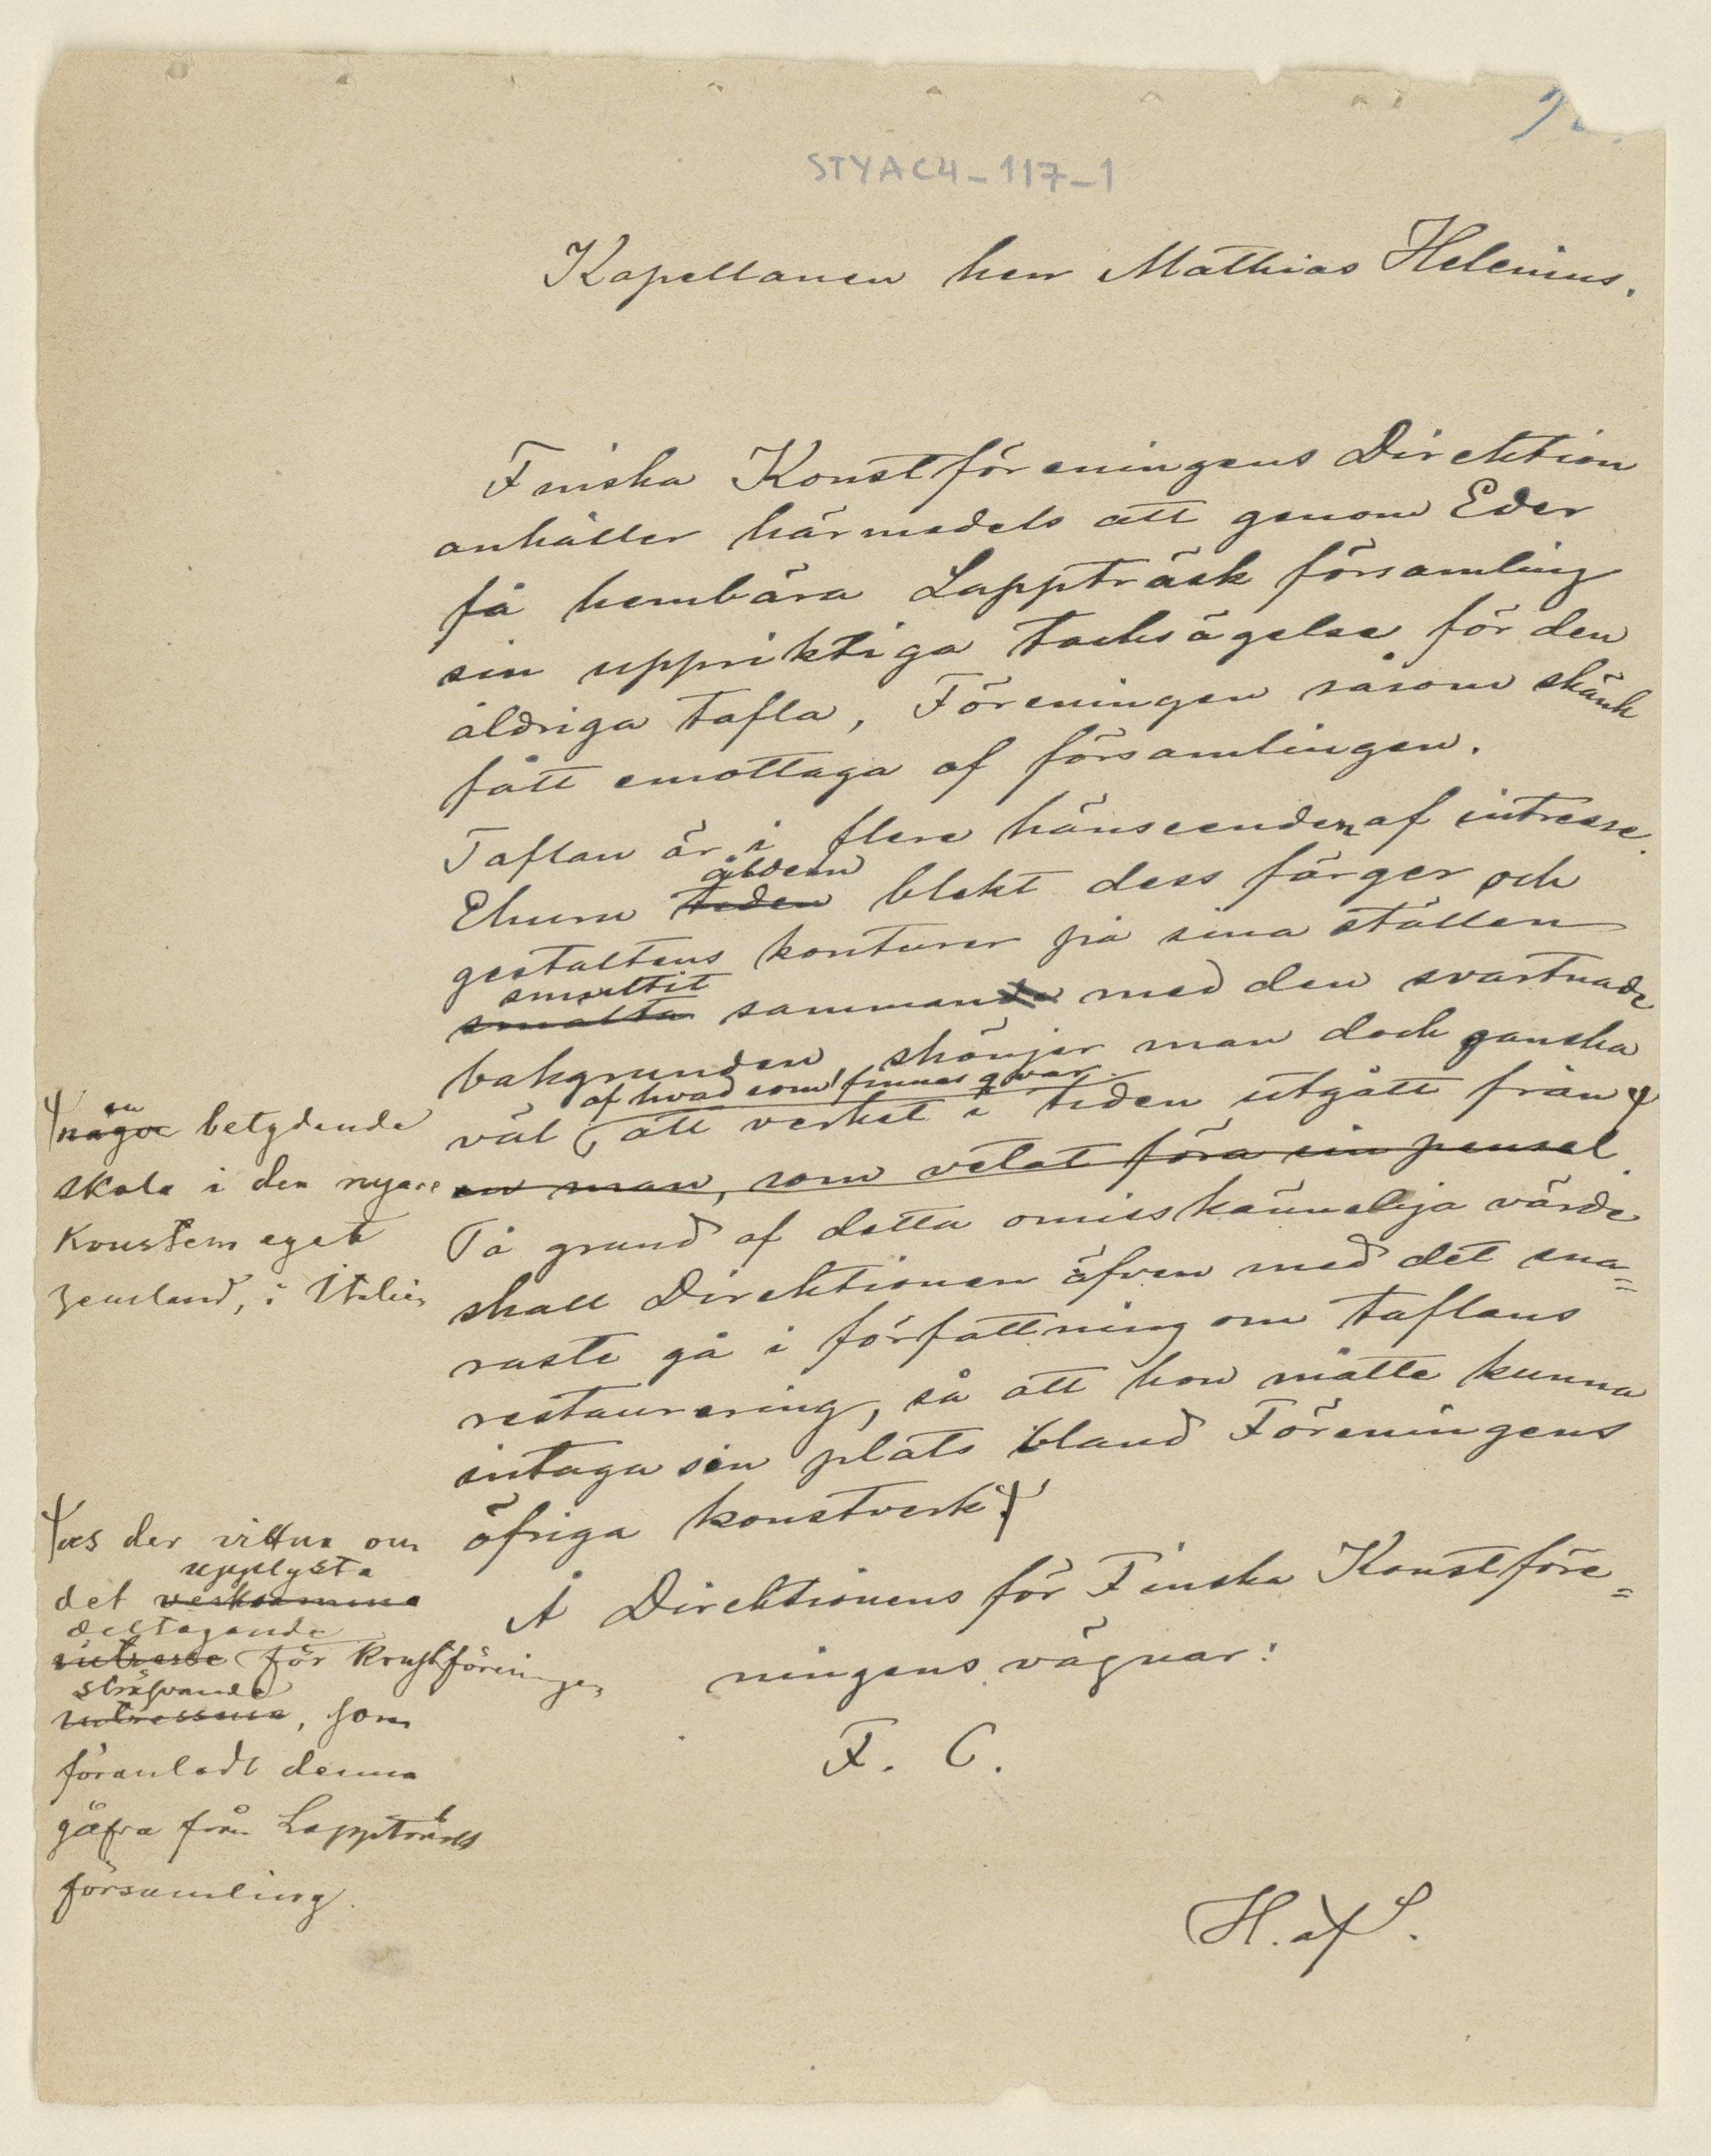 STYAC4-117-1
Kapellanen herr Mathias Helenius.
Finska Konstföreningens Direktion
anhåller härmedels att genom Eder
få hembära Lappträsk församling
sin uppriktiga tacksägelse för den
åldriga tafla, Föreningen såsom skänk
fått emottaga af församlingen.
Taflan är i flere hänseenden af intresse.
åldern
Ehuru tiden blekt dess färger och
gestaltens konturer på sina ställen
smultit
smälta sammans med den svartnade
bakgrunden, skönjer man dock ganska
af hvad som finnes qvar
väl, att verket i tiden utgått från
en man, som vetat föra sin pensel.
På grund af detta omisskänneliga värde
skall Direktionen äfven med det sna=
raste gå i författning om taflans
restaurering, så att hon måtte kunna
intaga sin plats ibland Föreningens
öfriga konstverk.
Å Direktionens för Finska Konstföre=
ningens vägnar:
F. C.
H. af S.
en
någon betydande
skola i den nyare
Konstens eget
hemland, i Italien
och der vittna om
upplysta
det verksamma
deltagande
intresse för Konstföreningens
sträfvande
intressena, som
föranledt denna
gåfva från Lappträsk
församling.